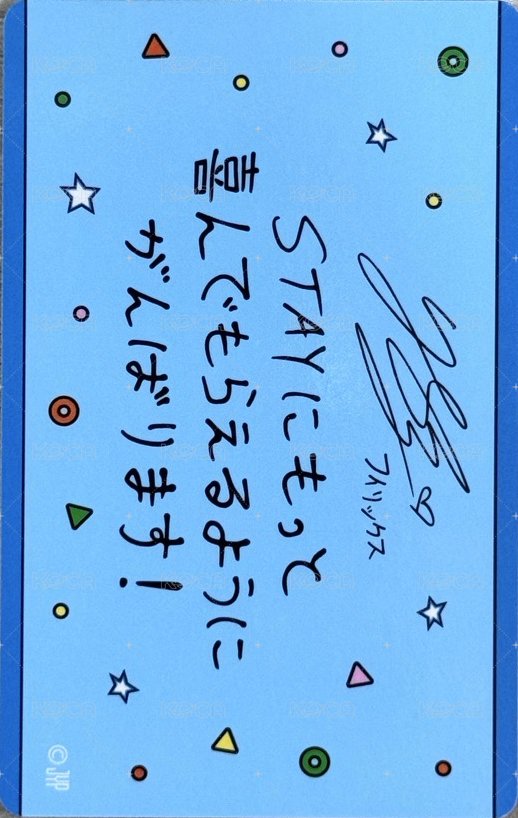 フィリックス
STAYにもっと
喜んでもらえるように
がんばります！
© JYP